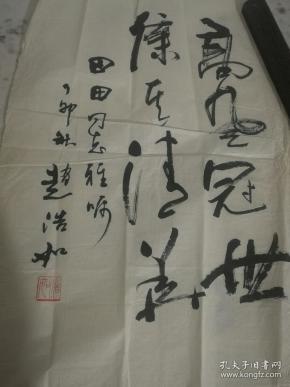 高風冠世
其清
田田同志雅嘱
丁卯秋 趙浩如
孔夫子旧书网